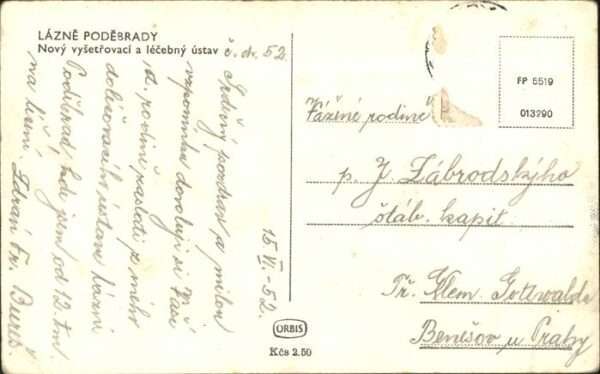 LÁZNĚ PODĚBRADY
Nový vyšetřovací a léčebný ústav č. d. 52.
Srdečný pozdrav a milou
vzpomínku dovoluji si Vaší
ct. rodině zaslati z mého
doléčovacího ústavu lázní
Poděbrad, kde jsem od 12. t.m.
na léčení. Zdraví Fr. Bureš
15. VI. - 52.
FP 5519
013290
Vážené rodině
p. J. Zábrodskýho
štáb. kapit
Tř. Klem. Gottwalda
Benešov u Prahy
ORBIS
Kčs 2.50